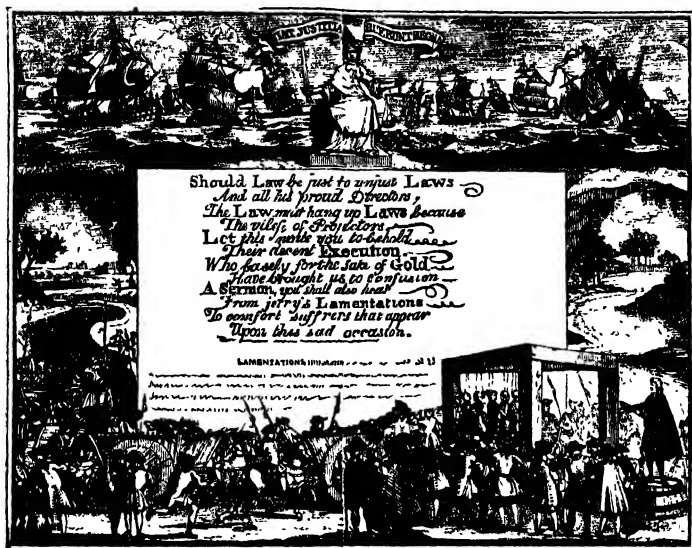 FIAT JUSTITIA
Should Law be just to unjust Laws
And all his proud Directors,
The Law must hang up Laws because
The vilest of Projectors
Let this invite you to behold
Their decent Execution
Who basely for the sake of Gold
Have brought us to Confusion
A Sermon, you shall also hear
From jerry's Lamentations
To comfort suff'rers that appear
Upon this sad occasion.
LAMENTATIONS